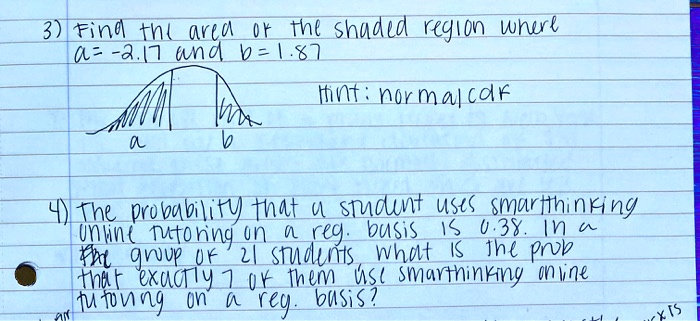 3) Find the area of the shaded region where
a= -2.17 and b=1.87
Hint: normalcdf
a b
4) The probability that a student uses smartthinking
online tutoring on a reg. basis is 0.38. In a
group of 21 students what is the prob
that exactly 7 of them use smarthinking online
tutoring on a reg. basis?